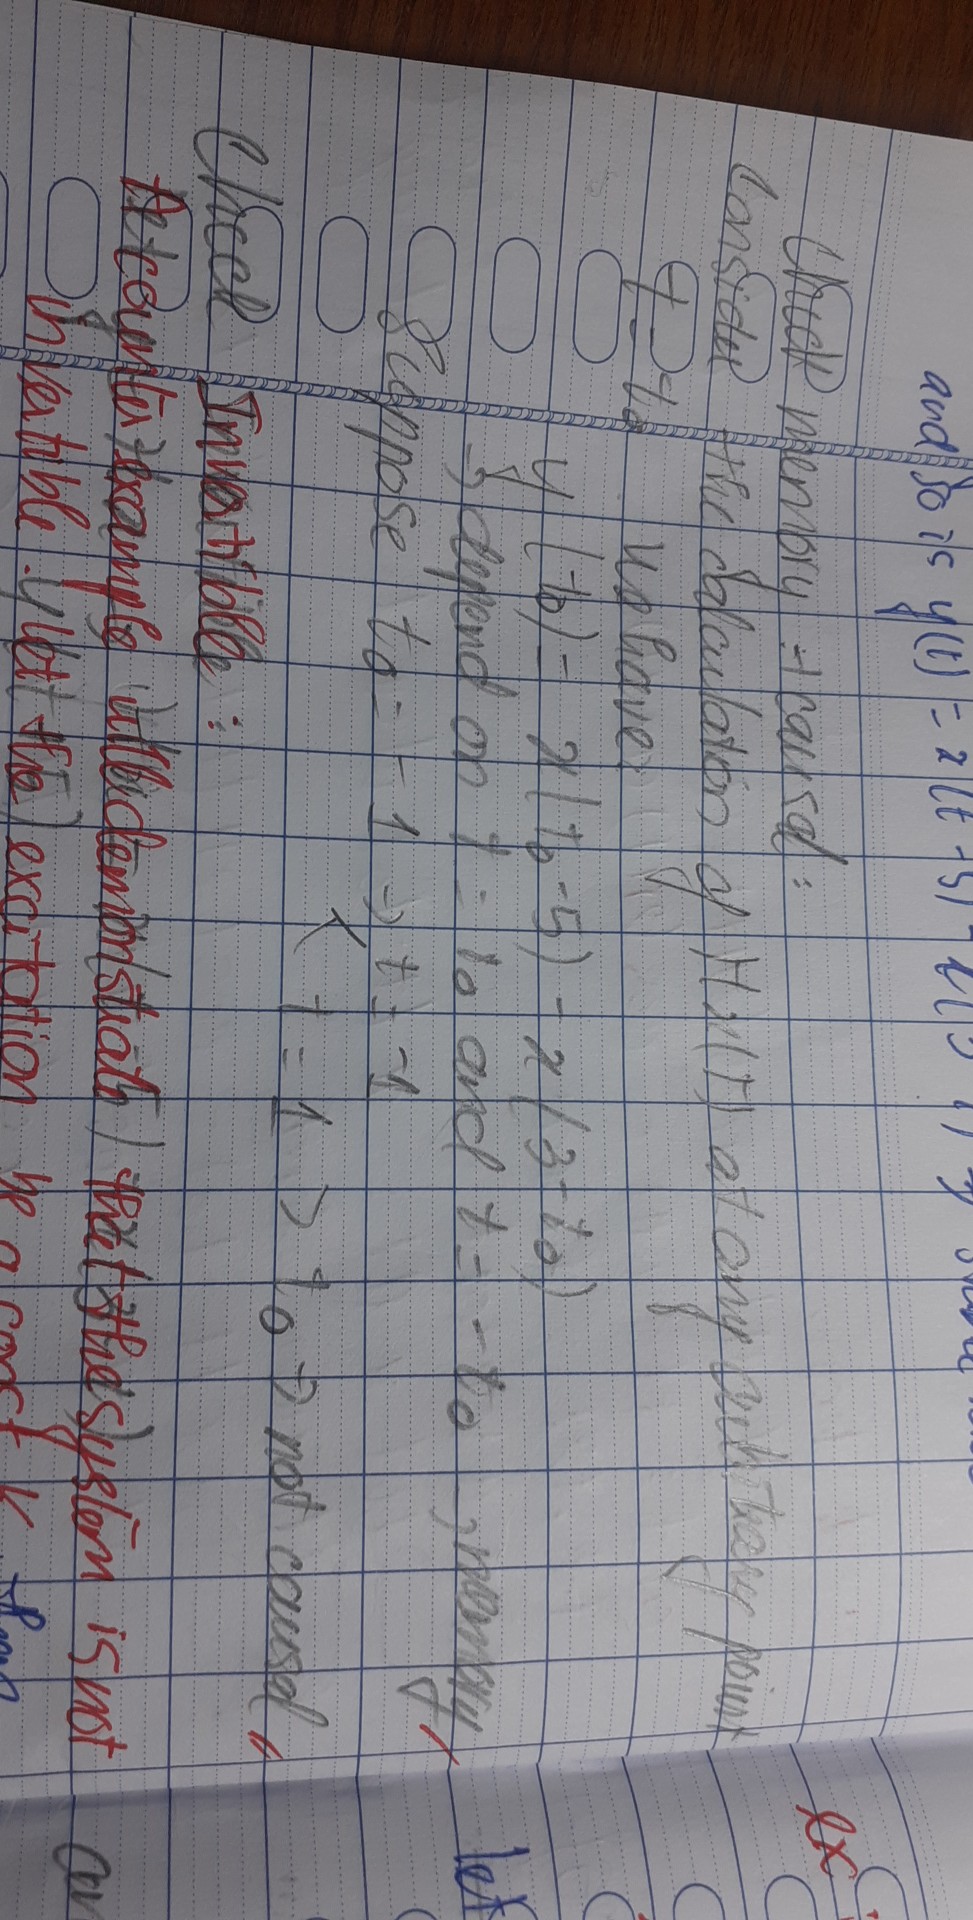 and so is y(t) = x(t - 5) - x(3 - t) →
Check memory + causal :
Consider the calculation of Hx(t) at any arbitrary point
t = t₀ we have:
y(t₀) = x(t₀ - 5) - x(3 - t₀)
→ depend on t = t₀ and t = -t₀ → memory
ex
let
Suppose t₀ = -1 → t = -1
t = 1 > t₀ → not causal
Check Invertible :
A counter example will demonstrate that the system is not
invertible. let the excitation be a const K then